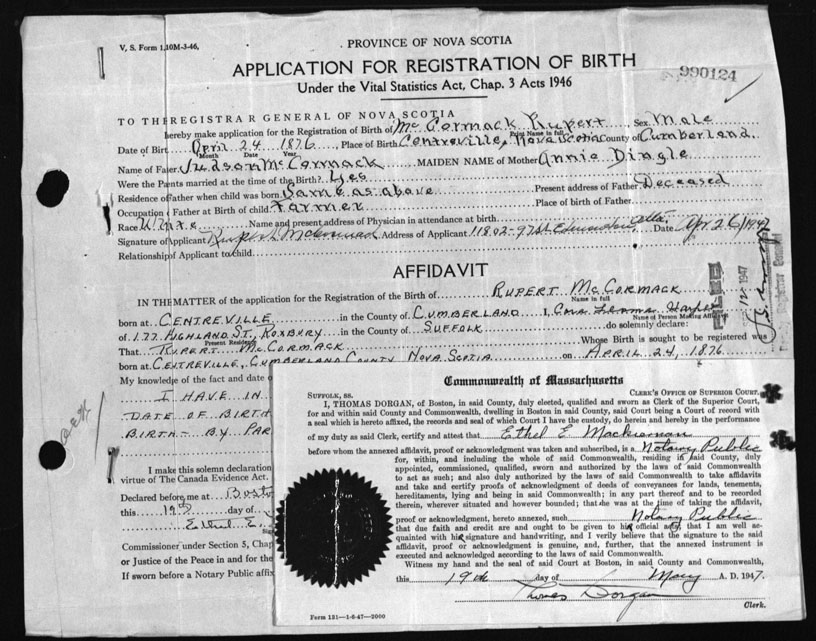 V. S. Form 1, 10M-3-46,
PROVINCE OF NOVA SCOTIA
APPLICATION FOR REGISTRATION OF BIRTH
990124
Under the Vital Statistics Act, Chap. 3 Acts 1946
TO THE REGISTRAR GENERAL OF NOVA SCOTIA
hereby make application for the Registration of Birth of McCormack Rupert Sex Male
Print Name in full
Date of Birth April 24 1876, Place of Birth Centreville, Nova Scotia County of Cumberland
Month Date Year
Name of Father Judson McCormack MAIDEN NAME of Mother Annie Dingle
Were the Parents married at the time of the Birth? Yes
Residence of Father when child was born Same as above Present address of Father Deceased
Occupation of Father at Birth of child Farmer Place of birth of Father
Race White Name and present address of Physician in attendance at birth
Signature of Applicant Rupert McCormack Address of Applicant 11802-97 St Edmonton Alta. Date Apr 26/1947
Relationship of Applicant to Child
AFFIDAVIT
IN THE MATTER of the application for the Registration of Birth of RUPERT McCORMACK
Name in full
born at CENTREVILLE in the County of CUMBERLAND I,
Name of Person Making Affidavit
of 177 HIGHLAND ST, ROXBURY in the County of SUFFOLK do solemnly declare:
Present Residence
That RUPERT McCORMACK Whose Birth is sought to be registered was
born at CENTREVILLE, CUMBERLAND COUNTY NOVA SCOTIA on APRIL 24, 1876.
My knowledge of the fact and date o
I HAVE IN
DATE OF BIRTH
BIRTH - BY PAR
I make this solemn declaration
virtue of The Canada Evidence Act.
Declared before me at Bosto
this 19th day of
Ethel E.
Commissioner under Section 5, Chap
or Justice of the Peace in and for the
If sworn before a Notary Public affix
Commonwealth of Massachusetts
SUFFOLK, ss. CLERK'S OFFICE OF SUPERIOR COURT.
I, THOMAS DORGAN, of Boston, in said County, duly elected, qualified and sworn as Clerk of the Superior Court,
for and within said County and Commonwealth, dwelling in Boston in said County, said Court being a Court of record with
a seal which is hereto affixed, the records and seal of which Court I have the custody, do hereby and herein in the performance
of my duty as said Clerk, certify and attest that Ethel E Mackiernan
before whom the annexed affidavit, proof or acknowledgment was taken and subscribed, is a Notary Public
for, within, and including the whole of said Commonwealth, residing in said County, duly
appointed, commissioned, qualified, sworn and authorized by the laws of said Commonwealth
to act as such; and also duly authorized by the laws of said Commonwealth to take affidavits
and take and certify proofs of acknowledgment of deeds of conveyances for lands, tenements,
hereditaments, lying and being in said Commonwealth; in any part thereof and to be recorded
therein, wherever situated and however bounded; that she was at the time of taking the affidavit,
proof or acknowledgment, hereto annexed, such Notary Public
that due faith and credit are and ought to be given to his official acts; that I am well ac-
quainted with his signature and handwriting, and I verily believe that the signature to the said
affidavit, proof or acknowledgment is genuine, and, further, that the annexed instrument is
executed and acknowledged according to the laws of said Commonwealth.
Witness my hand and the seal of said Court at Boston, in said County and Commonwealth,
this 19th day of May A. D. 1947.
Thomas Dorgan
Clerk.
Form 121—1-6-47—2000